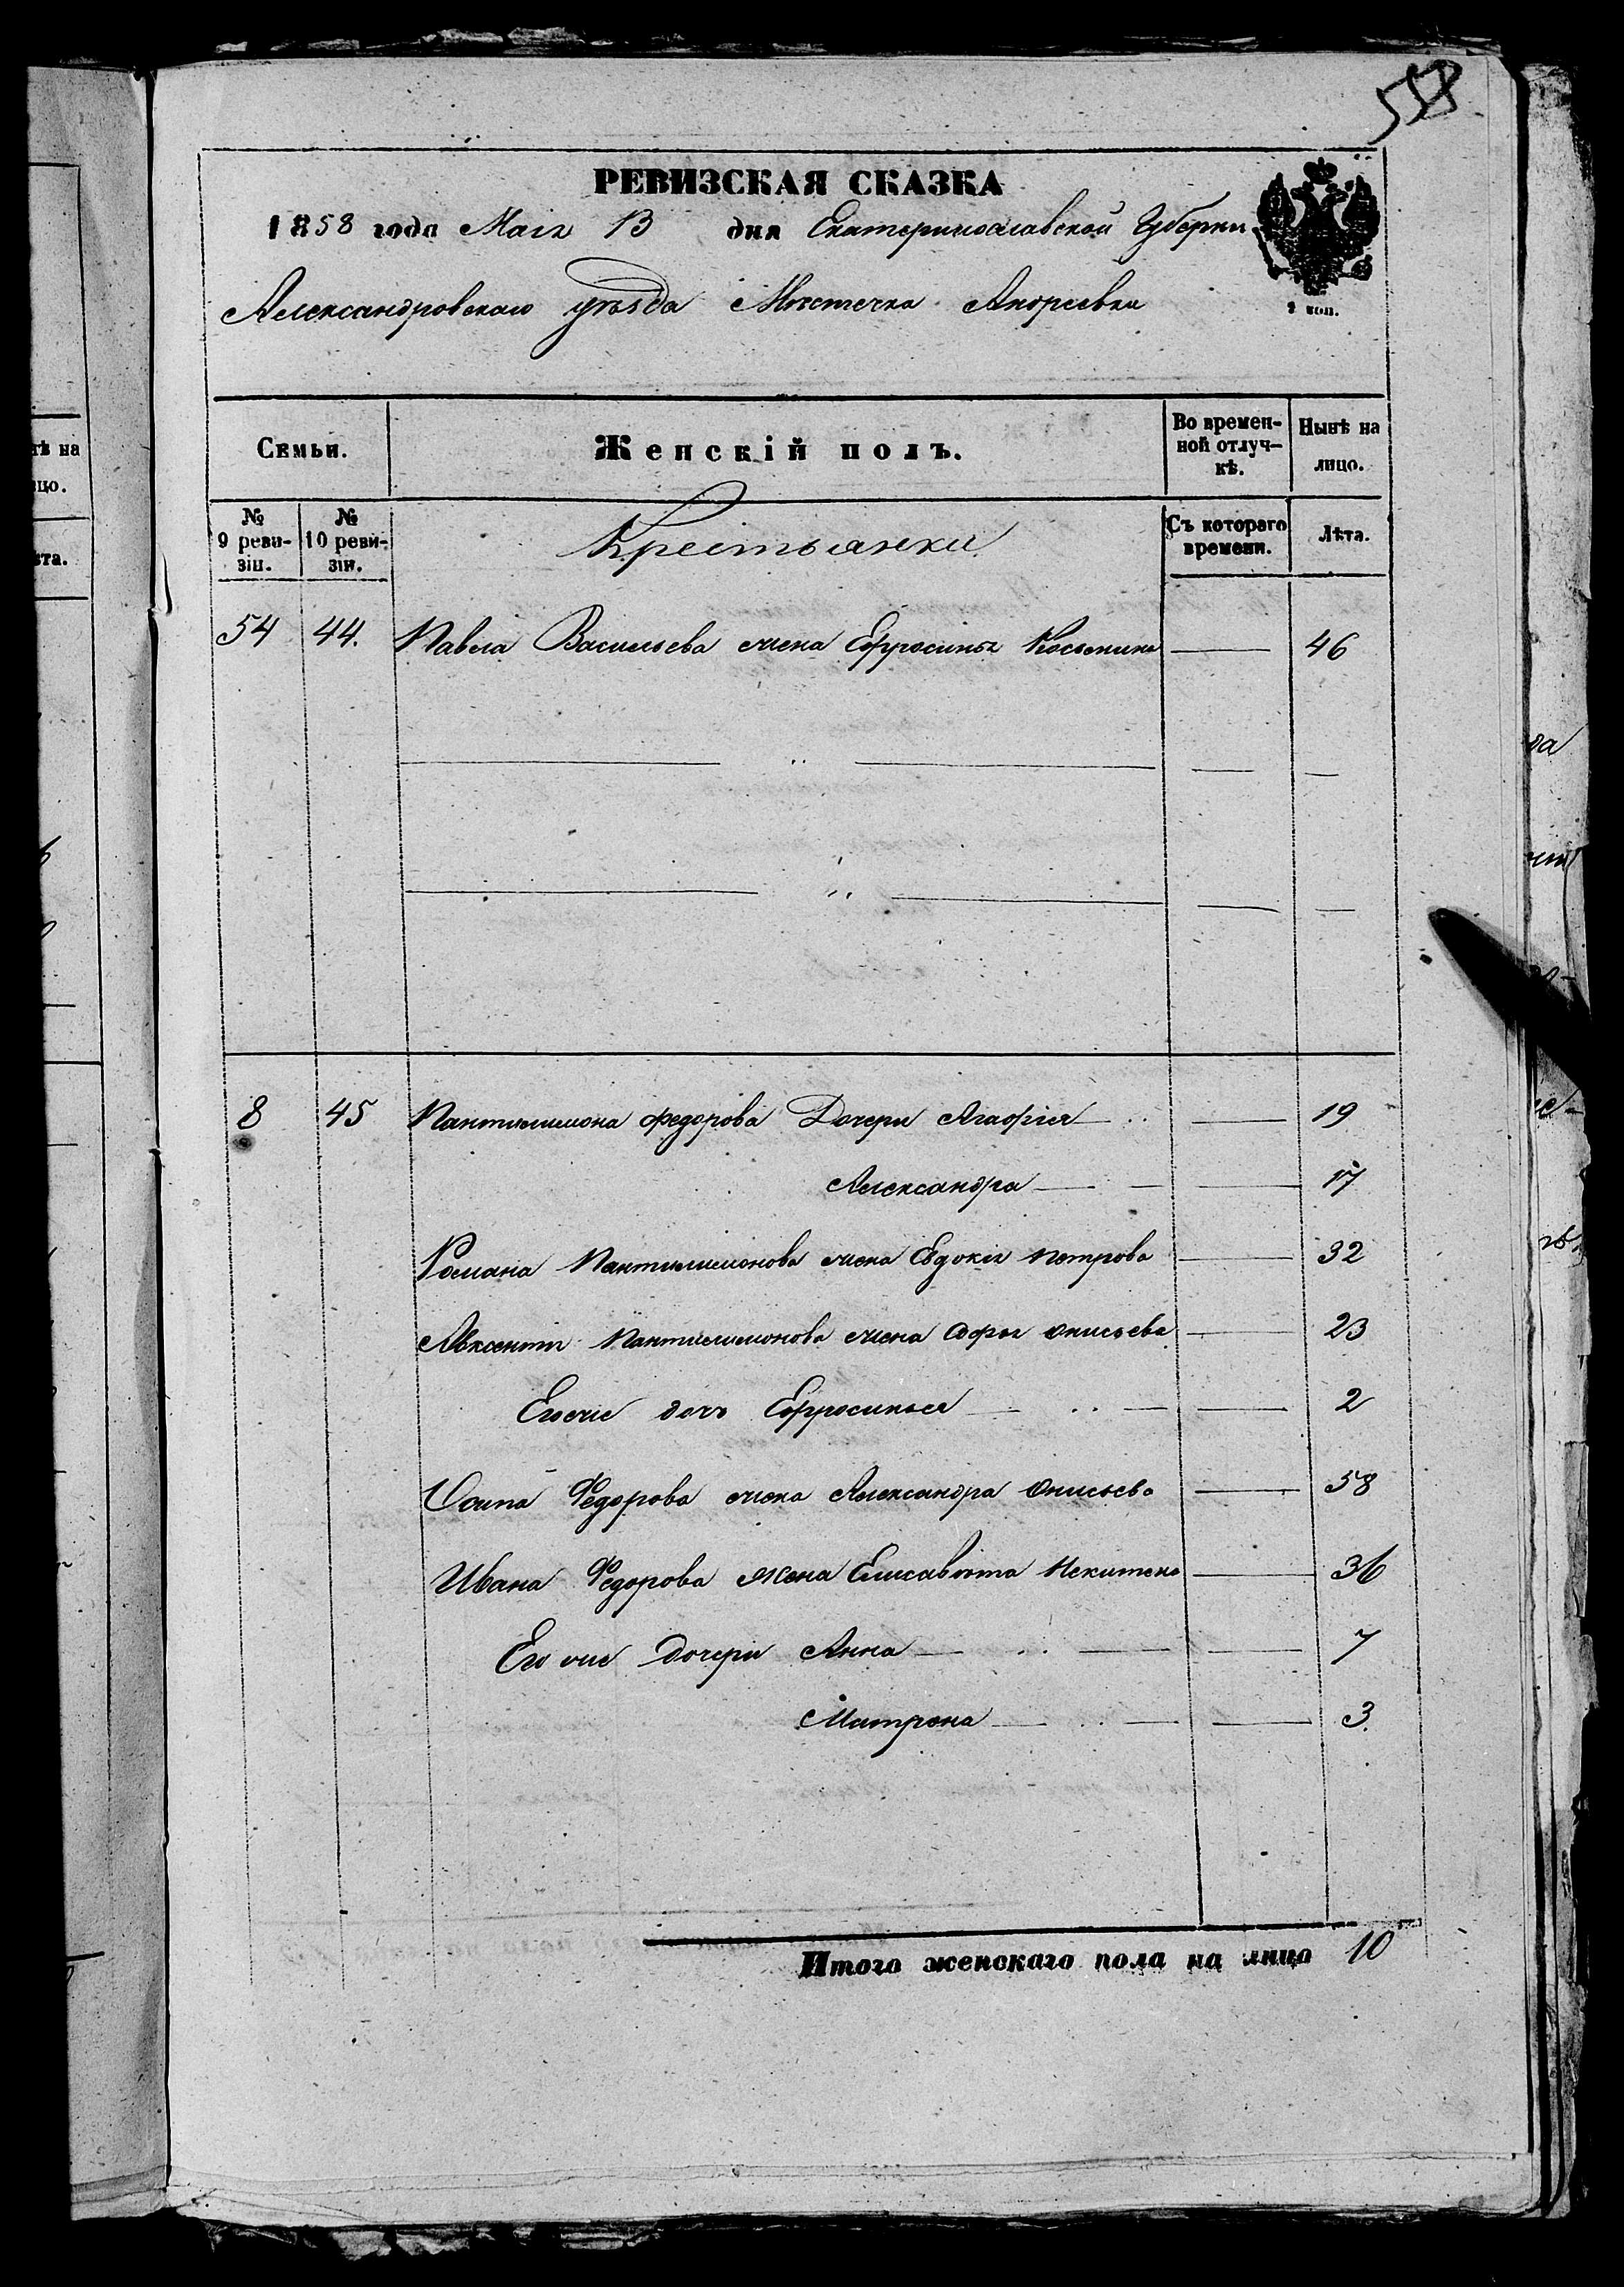 558
РЕВИЗСКАЯ СКАЗКА
1858 года Маія 13 дня Екатеринославской Губерніи
Александровскаго уѣзда Мѣстечка Андреевки
2 коп.
Семьи. Женскій полъ. Во времен-ной отлуч-кѣ. Нынѣ на лицо.
№ 9 реви-зіи. № 10 реви-зіи. Крестьянки Съ котораго времени. Лѣта.
54 44. Павла Васильева жена Ефросинья 46
8 45 Пантилимона Федорова Дочери Агафія 19
Александра 17
Романа Пантилимонова жена Евдокія Петрова 32
Авксентія Пантилимонова жена Софья Онисьева 23
Егоже дочь Ефросинья 2
Осипа Федорова жена Александра Онисьева 58
Ивана Федорова жена Елисавѣта 36
Его же Дочери Анна 7
Матрона 3.
Итого женскаго пола на лицо 10